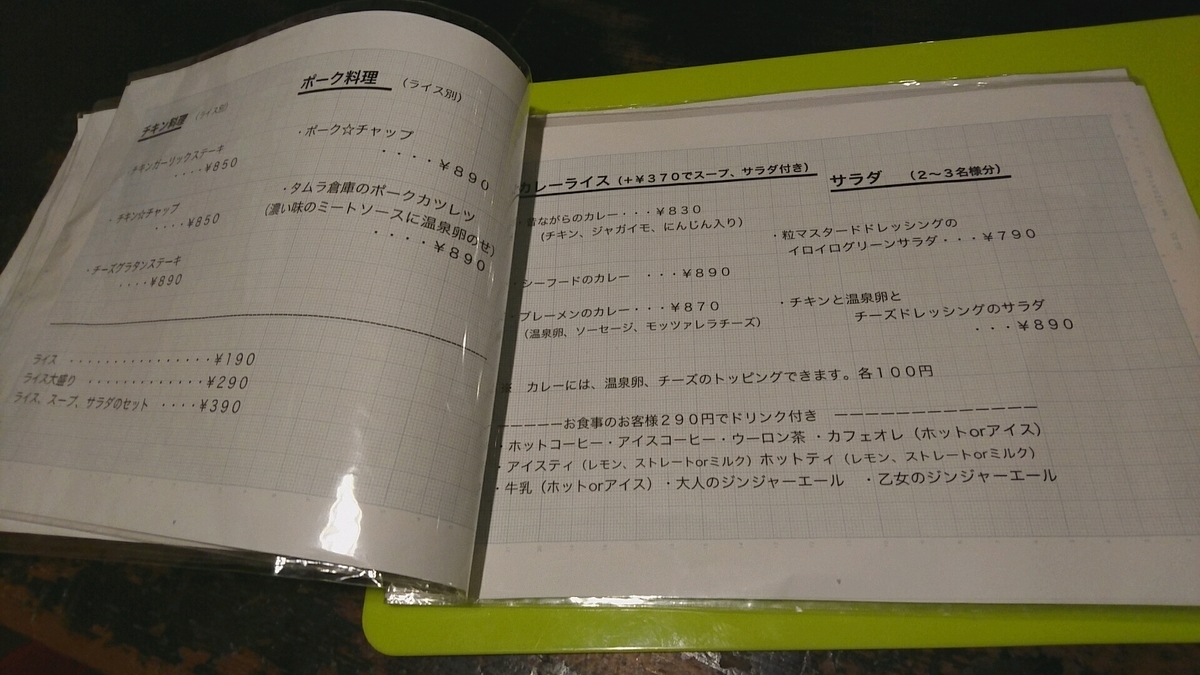 チキン料理 (ライス別)
チキンガーリックステーキ
····¥850
・チキン☆チャップ
····¥850
・チーズグラタンステーキ
····¥890
ポーク料理 (ライス別)
・ポーク☆チャップ
····¥890
・タムラ倉庫のポークカツレツ
(濃い味のミートソースに温泉卵のせ)
····¥890
ライス ················¥190
ライス大盛り ·············¥290
ライス、スープ、サラダのセット ····¥390
カレーライス (+¥370でスープ、サラダ付き)
・昔ながらのカレー···¥830
(チキン、ジャガイモ、にんじん入り)
・シーフードのカレー ···¥890
・ブレーメンのカレー···¥870
(温泉卵、ソーセージ、モッツァレラチーズ)
サラダ (2〜3名様分)
・粒マスタードドレッシングの
イロイログリーンサラダ···¥790
・チキンと温泉卵と
チーズドレッシングのサラダ
···¥890
※ カレーには、温泉卵、チーズのトッピングできます。各100円
−−−−−お食事のお客様290円でドリンク付き −−−−−−−−−−−−−
・ホットコーヒー・アイスコーヒー・ウーロン茶 ・カフェオレ(ホットorアイス)
・アイスティ(レモン、ストレートorミルク)ホットティ(レモン、ストレートorミルク)
・牛乳(ホットorアイス)・大人のジンジャーエール ・乙女のジンジャーエール